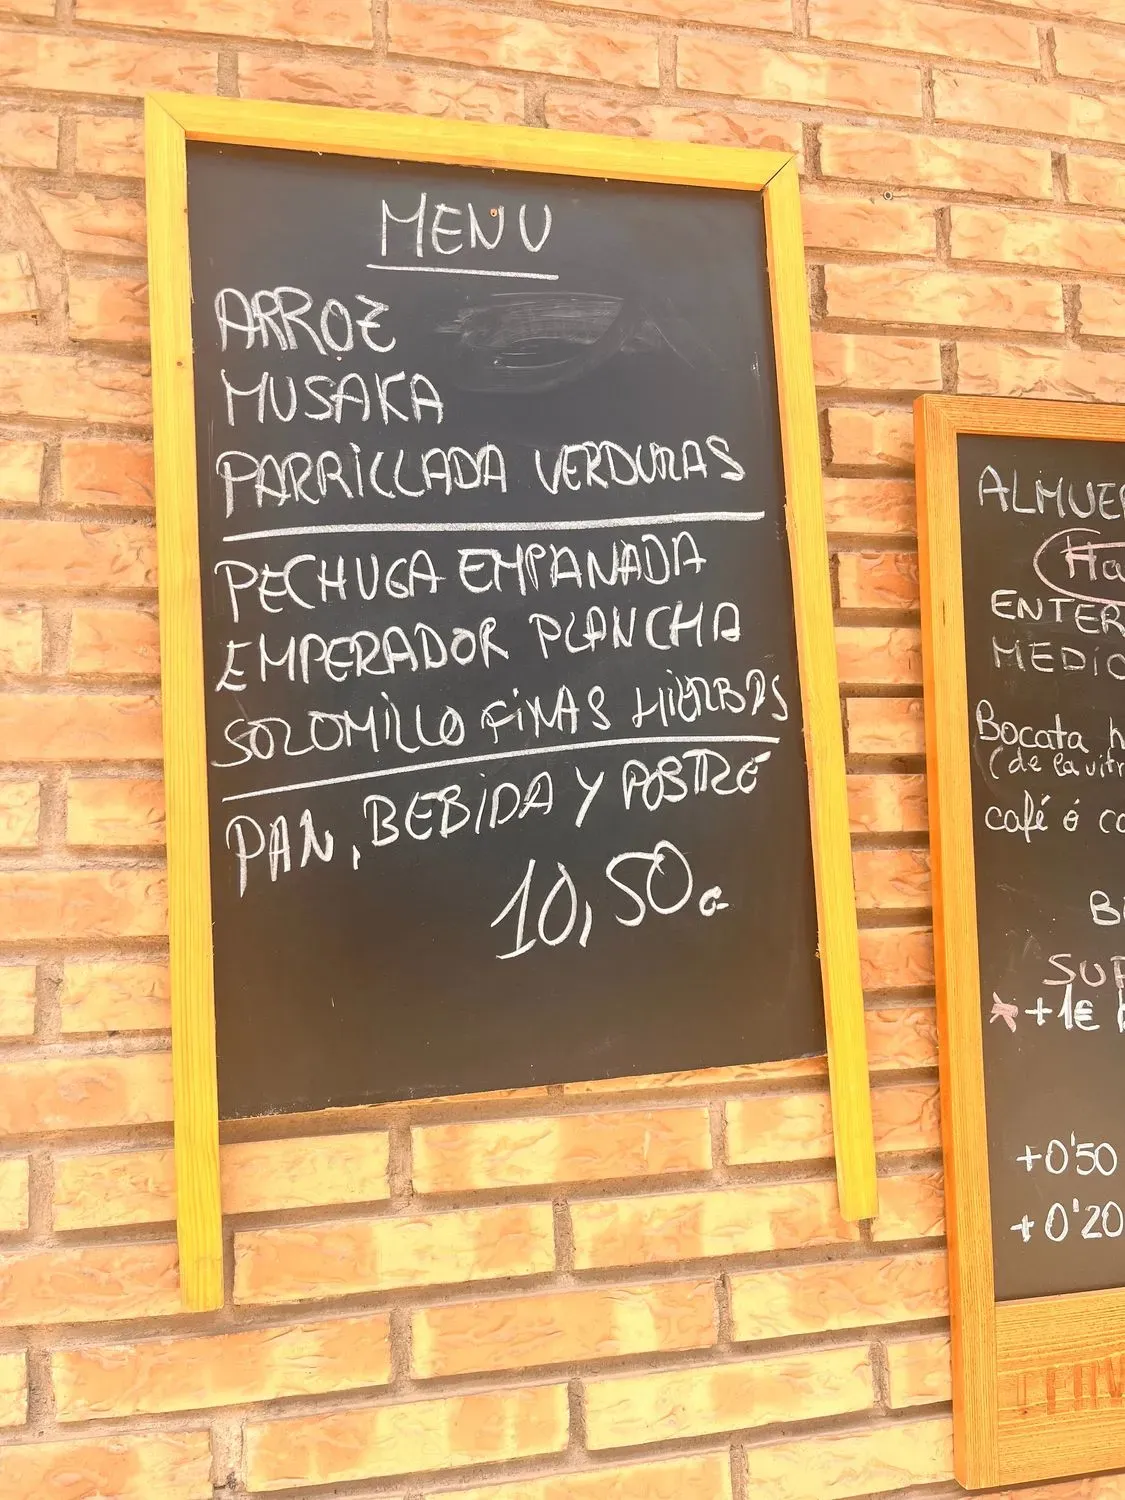 MENU
ARROZ
MUSAKA
PARRILLADA VERDURAS
PECHUGA EMPANADA
EMPERADOR PLANCHA
SOLOMILLO FINAS HIERBAS
PAN, BEBIDA Y POSTRE
10,50€
ALMUE
Ha
ENTER
MEDIO
Bocata h
(de la vitr
café ó co
B
SUP
+1€
+0'50
+0'20